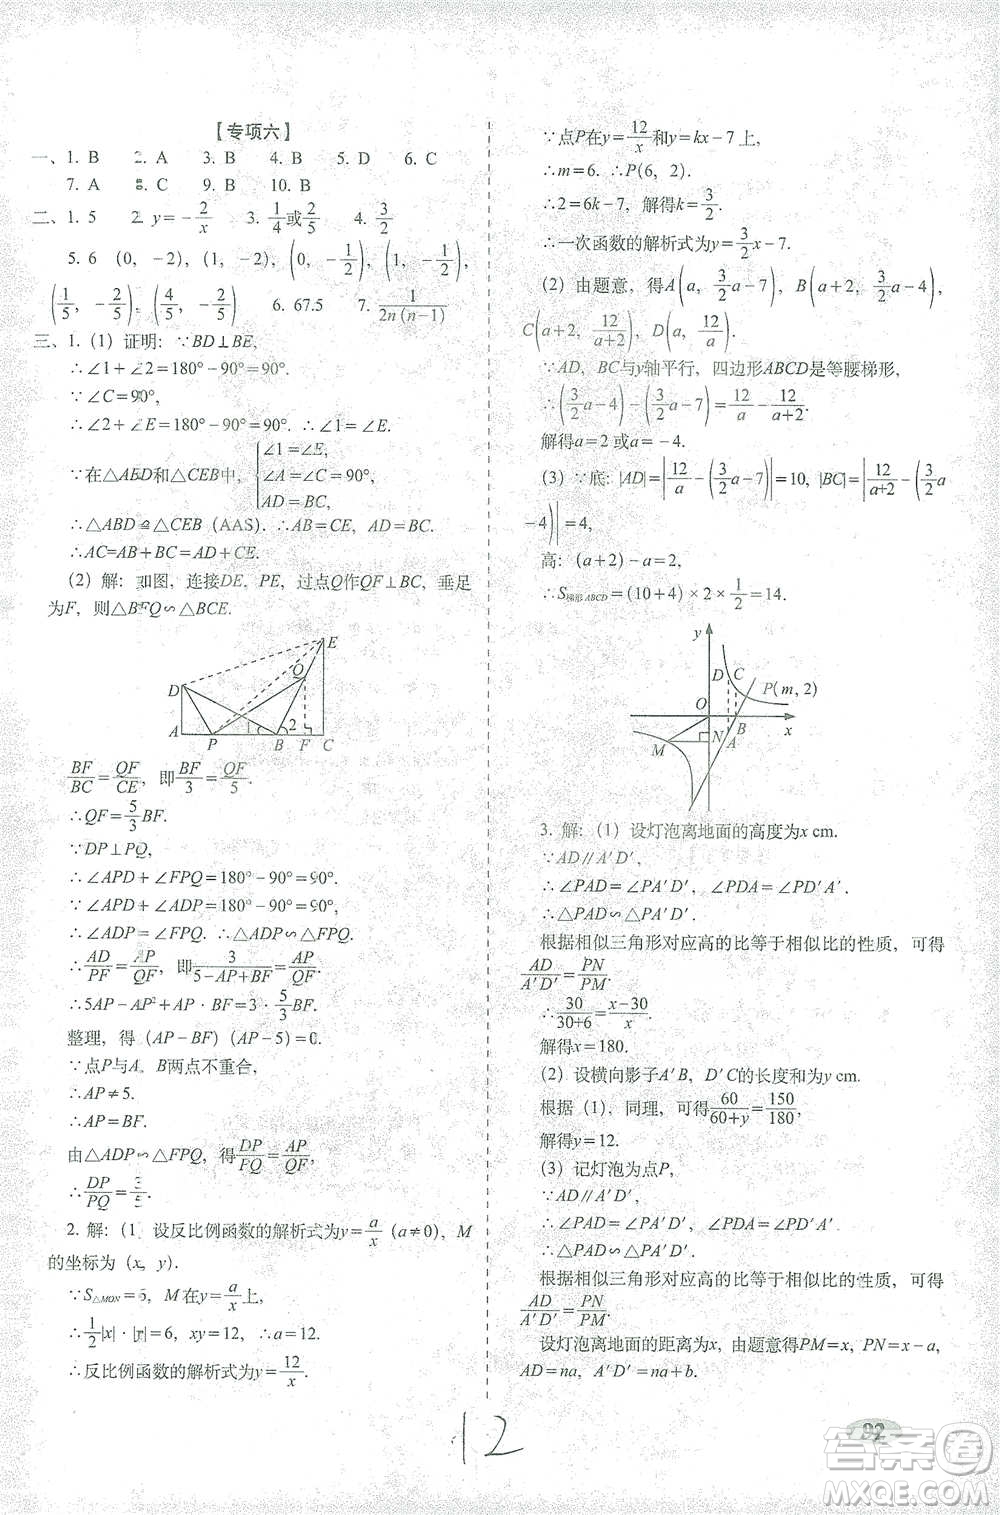 【专项六】
一、1. B 2. A 3. B 4. B 5. D 6. C
7. A 8. C 9. B 10. B
二、1. 5 2. y=-2/x 3. 1/4或2/5 4. 3/2
5. 6 (0, -2), (1, -2), (0, -1/2), (1, -1/2),
(1/5, -2/5), (4/5, -2/5) 6. 67.5 7. 1/2n(n-1)
三、1. (1) 证明：∵BD⊥BE,
∴∠1+∠2=180°-90°=90°.
∵∠C=90°,
∴∠2+∠E=180°-90°=90°. ∴∠1=∠E.
∵在△ABD和△CEB中, {∠1=∠E, ∠A=∠C=90°, AD=BC,
∴△ABD≌△CEB (AAS). ∴AB=CE, AD=BC.
∴AC=AB+BC=AD+CE.
(2) 解：如图，连接DE, PE, 过点Q作QF⊥BC, 垂足
为F, 则△BFQ∽△BCE.
E
D Q
1 2
A P B F C
BF/BC=QF/CE, 即BF/3=QF/5.
∴QF=5/3BF.
∵DP⊥PQ,
∴∠APD+∠FPQ=180°-90°=90°.
∴∠APD+∠ADP=180°-90°=90°.
∴∠ADP=∠FPQ. ∴△ADP∽△FPQ.
∴AD/PF=AP/QF, 即3/5-AP+BF=AP/QF.
∴5AP-AP²+AP·BF=3·5/3BF.
整理，得 (AP-BF) (AP-5) =0.
∵点P与A, B两点不重合,
∴AP≠5.
∴AP=BF.
由△ADP∽△FPQ, 得DP/PQ=AP/QF.
∴DP/PQ=3/5.
2. 解：(1) 设反比例函数的解析式为y=a/x (a≠0), M
的坐标为 (x, y).
∵S△MON=6, M在y=a/x上,
∴1/2|x|·|y|=6, xy=12, ∴a=12.
∴反比例函数的解析式为y=12/x.
∵点P在y=12/x和y=kx-7上,
∴m=6. ∴P(6, 2).
∴2=6k-7, 解得k=3/2.
∴一次函数的解析式为y=3/2x-7.
(2) 由题意，得A(a, 3/2a-7), B(a+2, 3/2a-4),
C(a+2, 12/a+2), D(a, 12/a).
∵AD, BC与y轴平行，四边形ABCD是等腰梯形,
∴(3/2a-4)-(3/2a-7)=12/a-12/a+2.
解得a=2 或a=-4.
(3) ∵底：|AD|=|12/a-(3/2a-7)|=10, |BC|=|12/a+2-(3/2a
-4)|=4,
高：(a+2)-a=2,
∴S梯形ABCD=(10+4)×2×1/2=14.
y
D C
P(m, 2)
O
B x
M N A
3. 解：(1) 设灯泡离地面的高度为x cm.
∵AD∥A′D′,
∴∠PAD=∠PA′D′, ∠PDA=∠PD′A′.
∴△PAD∽△PA′D′.
根据相似三角形对应高的比等于相似比的性质，可得
AD/A′D′=PN/PM.
∴30/30+6=x-30/x.
解得x=180.
(2) 设横向影子A′B, D′C的长度和为y cm.
根据 (1), 同理，可得60/60+y=150/180,
解得y=12.
(3) 记灯泡为点P,
∵AD∥A′D′,
∴∠PAD=∠PA′D′, ∠PDA=∠PD′A′.
∴△PAD∽△PA′D′.
根据相似三角形对应高的比等于相似比的性质，可得
AD/A′D′=PN/PM.
设灯泡离地面的距离为x, 由题意得PM=x, PN=x-a,
AD=na, A′D′=na+b.
12
92
答案圈
MXQE.COM